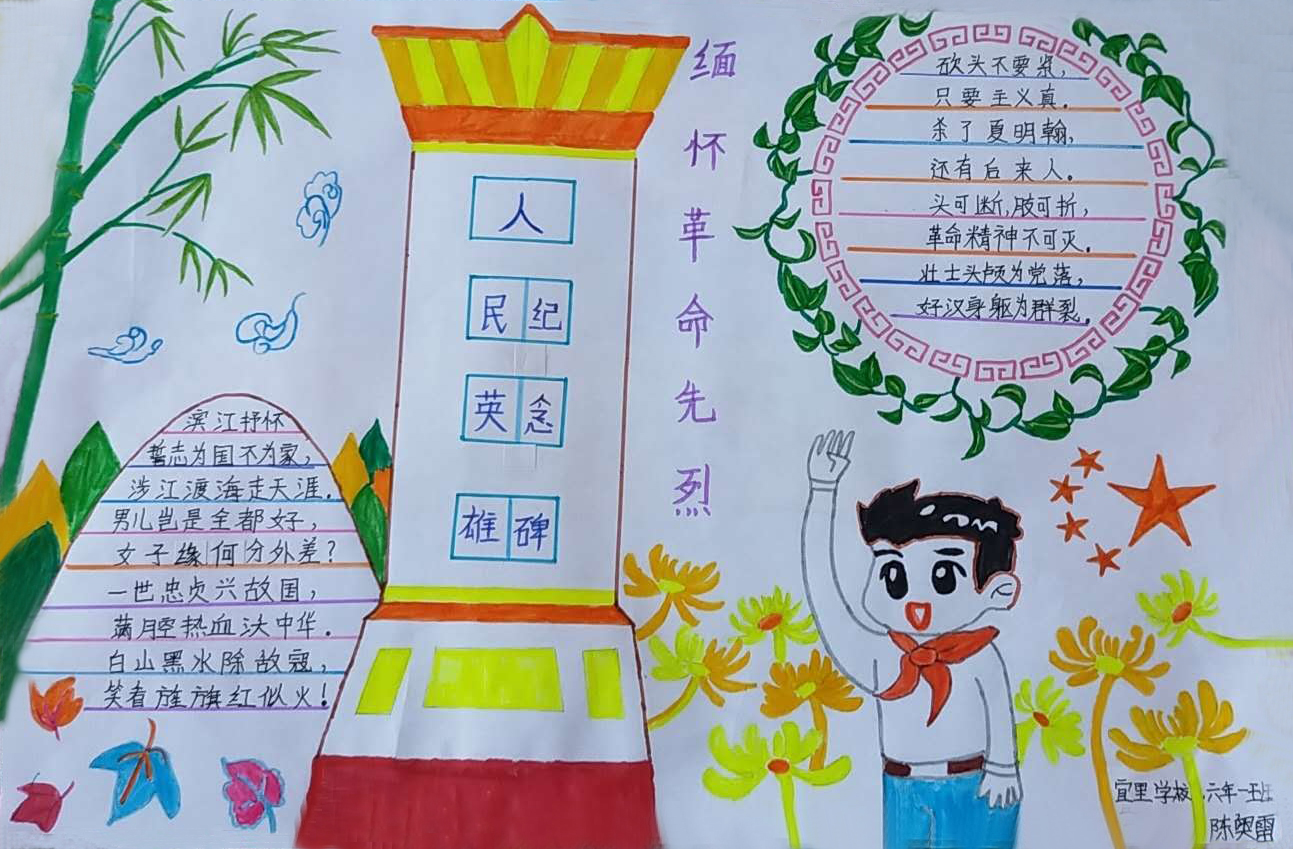 缅怀革命先烈
人
民纪
英念
雄碑
砍头不要紧，
只要主义真。
杀了夏明翰，
还有后来人。
头可断，肢可折，
革命精神不可灭。
壮士头颅为党落，
好汉身躯为群裂。
滨江抒怀
誓志为国不为家，
涉江渡海走天涯。
男儿岂是全都好，
女子缘何分外差？
一世忠贞兴故国，
满腔热血沃中华。
白山黑水除敌寇，
笑看旌旗红似火！
宜里学校 六年一班
陈奕雷